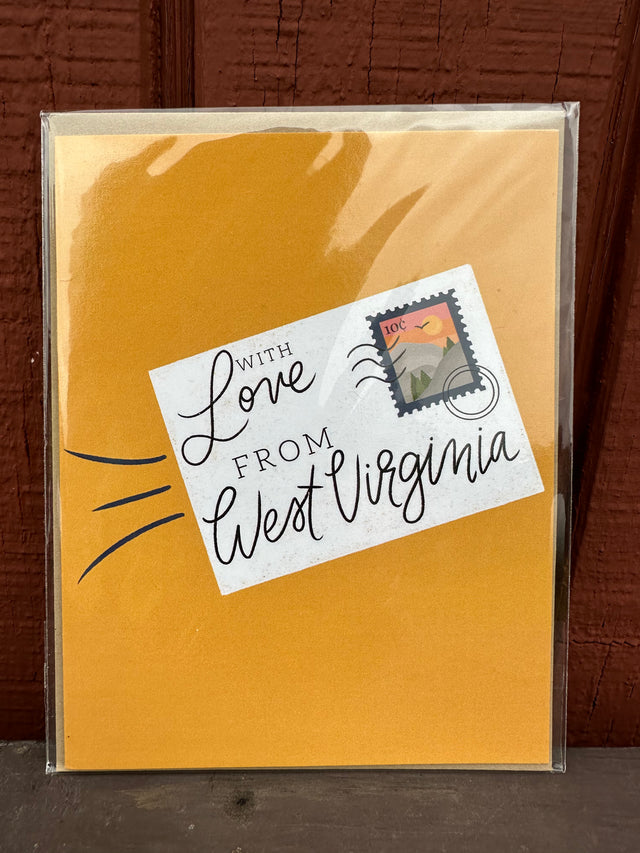 WITH
Love
FROM
West Virginia
10¢